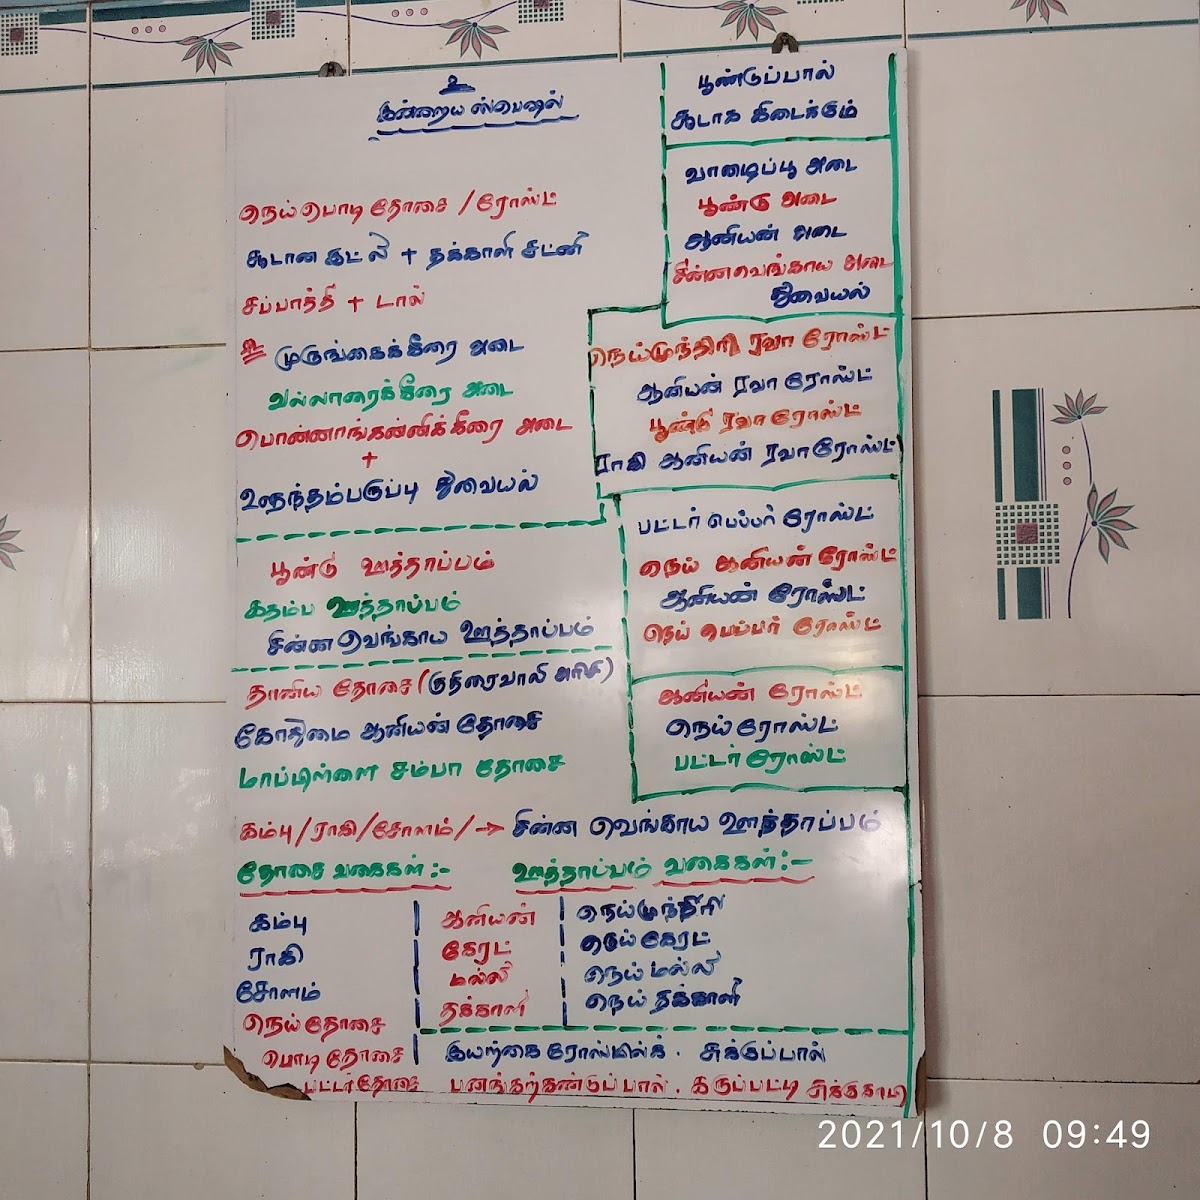 உ
இன்றைய ஸ்பெஷல்
நெய் பொடி தோசை / ரோஸ்ட்
சூடான இட்லி + தக்காளி சட்னி
சப்பாத்தி + டால்
முருங்கைக்கீரை அடை
வல்லாரைக்கீரை அடை
பொன்னாங்கன்னிக்கீரை அடை
+
உளுந்தம்பருப்பு துவையல்
பூண்டு ஊத்தாப்பம்
கதம்ப ஊத்தாப்பம்
சின்ன வெங்காய ஊத்தாப்பம்
தானிய தோசை (குதிரைவாலி அரிசி)
கோதுமை ஆனியன் தோசை
மாப்பிள்ளை சம்பா தோசை
பூண்டுப்பால்
சூடாக கிடைக்கும்
வாழைப்பூ அடை
பூண்டு அடை
ஆனியன் அடை
சின்னவெங்காய அடை
துவையல்
நெய்முந்திரி ரவா ரோஸ்ட்
ஆனியன் ரவா ரோஸ்ட்
பூண்டு ரவா ரோஸ்ட்
ராகி ஆனியன் ரவா ரோஸ்ட்
பட்டர் பெப்பர் ரோஸ்ட்
நெய் ஆனியன் ரோஸ்ட்
ஆனியன் ரோஸ்ட்
நெய் பெப்பர் ரோஸ்ட்
ஆனியன் ரோஸ்ட்
நெய் ரோஸ்ட்
பட்டர் ரோஸ்ட்
கம்பு / ராகி / சோளம் / → சின்ன வெங்காய ஊத்தாப்பம்
தோசை வகைகள் :-
கம்பு
ராகி
சோளம்
நெய் தோசை
பொடி தோசை
பட்டர் தோசை
ஊத்தாப்பம் வகைகள் :-
ஆனியன்
கேரட்
மல்லி
தக்காளி
நெய்முந்திரி
நெய் கேரட்
நெய் மல்லி
நெய் தக்காளி
இயற்கை ரோஸ்மில்க் . சுக்குப்பால்
பனங்கற்கண்டுப்பால் . கருப்பட்டி சுக்குகாபி
2021/10/8 09:49